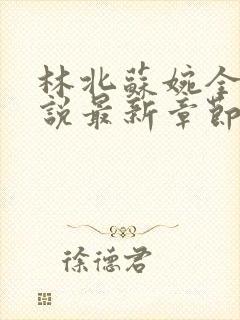 林北蘇婉全
說最新章節
徐德君